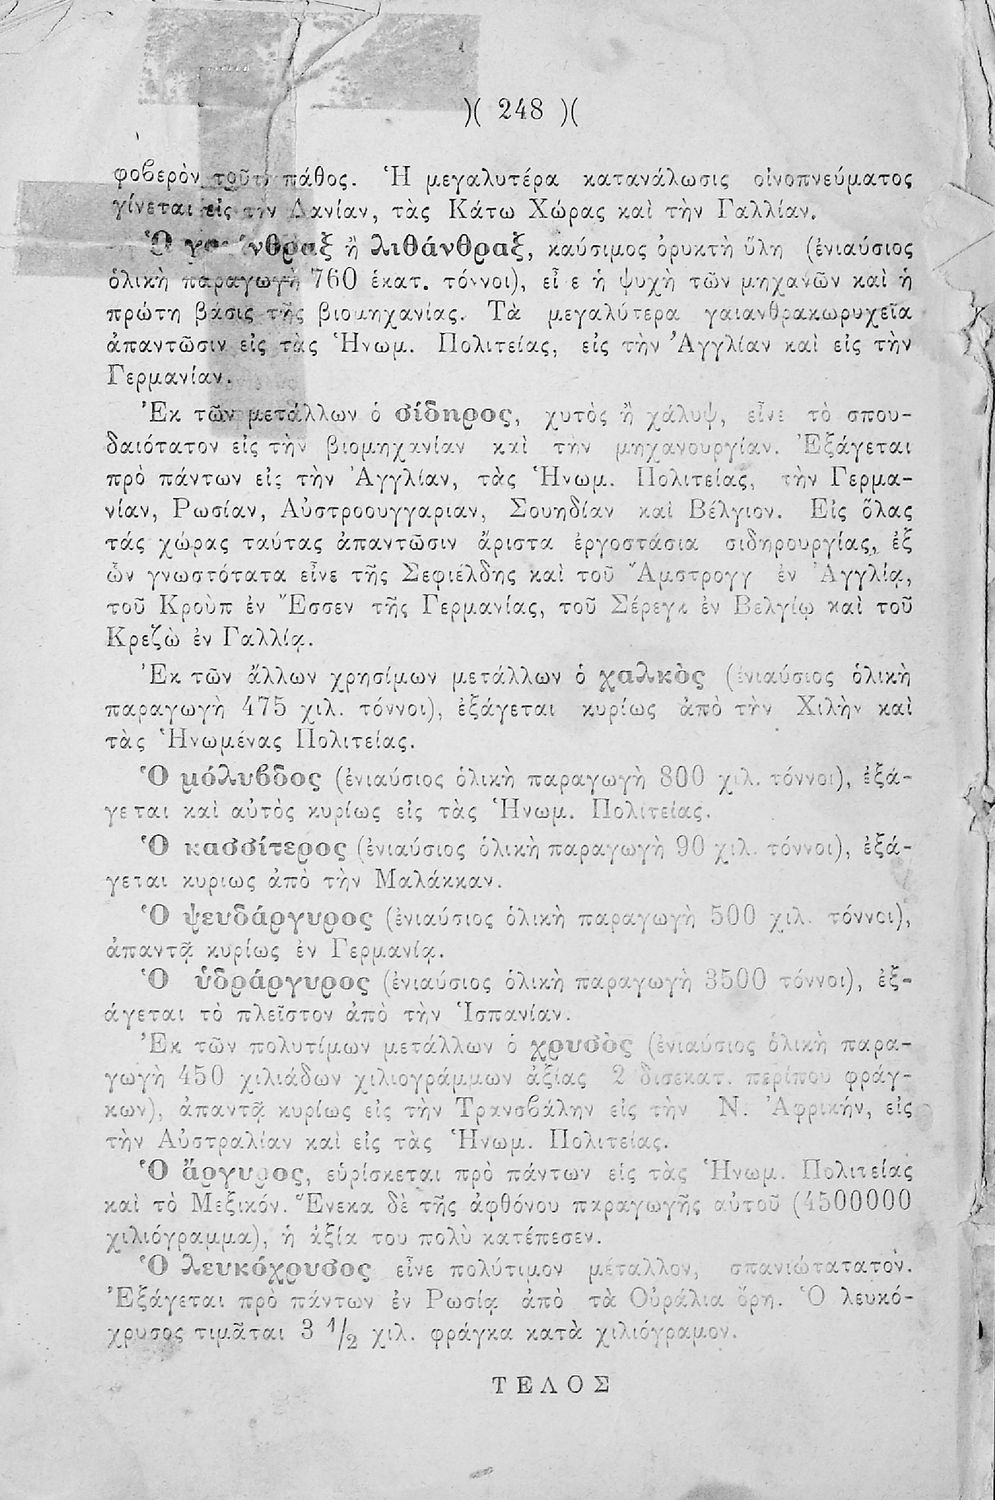 )( 248 )(
φοβερὸν τοῦτο πάθος. Ἡ μεγαλυτέρα κατανάλωσις οἰνοπνεύματος
γίνεται εἰς τὴν Δανίαν, τὰς Κάτω Χώρας καὶ τὴν Γαλλίαν.
Ὁ γαιάνθραξ ἢ λιθάνθραξ, καύσιμος ὀρυκτὴ ὕλη (ἐνιαύσιος
ὁλικὴ παραγωγὴ 760 ἑκατ. τόννοι), εἶ ε ἡ ψυχὴ τῶν μηχανῶν καὶ ἡ
πρώτη βάσις τῆς βιομηχανίας. Τὰ μεγαλύτερα γαιανθρακωρυχεῖα
ἀπαντῶσιν εἰς τὰς Ἡνωμ. Πολιτείας, εἰς τὴν Ἀγγλίαν καὶ εἰς τὴν
Γερμανίαν.
Ἐκ τῶν μετάλλων ὁ σίδηρος, χυτὸς ἢ χάλυψ, εἶνε τὸ σπου-
δαιότατον εἰς τὴν βιομηχανίαν καὶ τὴν μηχανουργίαν. Ἐξάγεται
πρὸ πάντων εἰς τὴν Ἀγγλίαν, τὰς Ἡνωμ. Πολιτείας, τὴν Γερμα-
νίαν, Ρωσίαν, Αὐστροουγγαριαν, Σουηδίαν καὶ Βέλγιον. Εἰς ὅλας
τάς χώρας ταύτας ἀπαντῶσιν ἄριστα ἐργοστάσια σιδηρουργίας, ἐξ
ὧν γνωστότατα εἶνε τῆς Σεφιέλδης καὶ τοῦ Ἄμστρογγ ἐν Ἀγγλίᾳ,
τοῦ Κροὺπ ἐν Ἔσσεν τῆς Γερμανίας, τοῦ Σέρεγκ ἐν Βελγίῳ καὶ τοῦ
Κρεζὼ ἐν Γαλλίᾳ.
Ἐκ τῶν ἄλλων χρησίμων μετάλλων ὁ χαλκὸς (ἐνιαύσιος ὁλικὴ
παραγωγὴ 475 χιλ. τόννοι), ἐξάγεται κυρίως ἀπὸ τὴν Χιλὴν καὶ
τὰς Ἡνωμένας Πολιτείας.
Ὁ μόλυβδος (ἐνιαύσιος ὁλικὴ παραγωγὴ 800 χιλ. τόννοι), ἐξά-
γεται καὶ αὐτὸς κυρίως εἰς τὰς Ἡνωμ. Πολιτείας.
Ὁ κασσίτερος (ἐνιαύσιος ὁλικὴ παραγωγὴ 90 χιλ. τόννοι), ἐξά-
γεται κυριως ἀπὸ τὴν Μαλάκκαν.
Ὁ ψευδάργυρος (ἐνιαύσιος ὁλικὴ παραγωγὴ 500 χιλ. τόννοι),
ἀπαντᾷ κυρίως ἐν Γερμανίᾳ.
Ὁ ὑδράργυρος (ἐνιαύσιος ὁλικὴ παραγωγὴ 3500 τόννοι), ἐξ-
άγεται τὸ πλεῖστον ἀπὸ τὴν Ἱσπανίαν.
Ἐκ τῶν πολυτίμων μετάλλων ὁ χρυσὸς (ἐνιαύσιος ὁλικὴ παρα-
γωγὴ 450 χιλιάδων χιλιογράμμων ἀξίας 2 δισεκατ. περίπου φράγ-
κων), ἀπαντᾷ κυρίως εἰς τὴν Τρανσβάλην εἰς τὴν Ν. Ἀφρικήν, εἰς
τὴν Αὐστραλίαν καὶ εἰς τὰς Ἡνωμ. Πολιτείας.
Ὁ ἄργυρος, εὑρίσκεται πρὸ πάντων εἰς τὰς Ἡνωμ. Πολιτείας
καὶ τὸ Μεξικόν. Ἕνεκα δὲ τῆς ἀφθόνου παραγωγῆς αὐτοῦ (4500000
χιλιόγραμμα), ἡ ἀξία του πολὺ κατέπεσεν.
Ὁ λευκόχρυσος εἶνε πολύτιμον μέταλλον, σπανιώτατατον.
Ἐξάγεται πρὸ πάντων ἐν Ρωσίᾳ ἀπὸ τὰ Οὐράλια ὄρη. Ὁ λευκό-
χρυσος τιμᾶται 3 1/2 χιλ. φράγκα κατὰ χιλιόγραμον.
ΤΕΛΟΣ